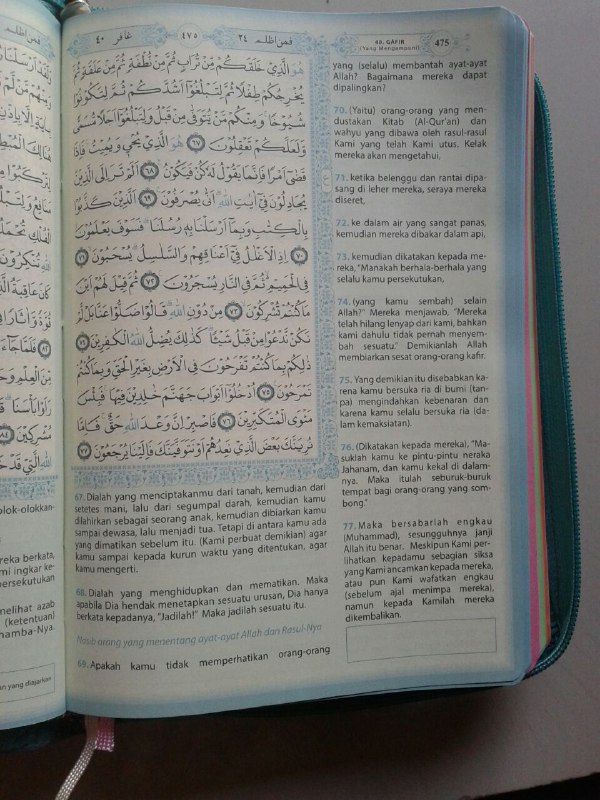 غافر ٤٠
٤٧٥
فمن اظلم ٢٤
40. GĀFIR
(Yang Mengampuni)
475
هُوَ الَّذِيْ خَلَقَكُمْ مِّنْ تُرَابٍ ثُمَّ مِنْ نُّطْفَةٍ ثُمَّ مِنْ عَلَقَةٍ ثُمَّ
يُخْرِجُكُمْ طِفْلًا ثُمَّ لِتَبْلُغُوْٓا اَشُدَّكُمْ ثُمَّ لِتَكُوْنُوْا
شُيُوْخًا وَمِنْكُمْ مَّنْ يُّتَوَفّٰى مِنْ قَبْلُ وَلِتَبْلُغُوْٓا اَجَلًا مُّسَمًّى
وَّلَعَلَّكُمْ تَعْقِلُوْنَ ٦٧ هُوَ الَّذِيْ يُحْيٖ وَيُمِيْتُ فَاِذَا
قَضٰٓى اَمْرًا فَاِنَّمَا يَقُوْلُ لَهٗ كُنْ فَيَكُوْنُ ٦٨ اَلَمْ تَرَ اِلَى الَّذِيْنَ
يُجَادِلُوْنَ فِيْٓ اٰيٰتِ اللّٰهِ اَنّٰى يُصْرَفُوْنَ ٦٩ الَّذِيْنَ كَذَّبُوْا
بِالْكِتٰبِ وَبِمَآ اَرْسَلْنَا بِهٖ رُسُلَنَا فَسَوْفَ يَعْلَمُوْنَ
٧٠ اِذِ الْاَغْلٰلُ فِيْٓ اَعْنَاقِهِمْ وَالسَّلٰسِلُ يُسْحَبُوْنَ ٧١
فِى الْحَمِيْمِ ثُمَّ فِى النَّارِ يُسْجَرُوْنَ ٧٢ ثُمَّ قِيْلَ لَهُمْ اَيْنَ
مَا كُنْتُمْ تُشْرِكُوْنَ ٧٣ مِنْ دُوْنِ اللّٰهِ قَالُوْا ضَلُّوْا عَنَّا بَلْ لَّمْ
نَكُنْ نَّدْعُوْا مِنْ قَبْلُ شَيْـًٔا كَذٰلِكَ يُضِلُّ اللّٰهُ الْكٰفِرِيْنَ ٧٤
ذٰلِكُمْ بِمَا كُنْتُمْ تَفْرَحُوْنَ فِى الْاَرْضِ بِغَيْرِ الْحَقِّ وَبِمَا كُنْتُمْ
تَمْرَحُوْنَ ٧٥ اُدْخُلُوْٓا اَبْوَابَ جَهَنَّمَ خٰلِدِيْنَ فِيْهَا فَبِئْسَ
مَثْوَى الْمُتَكَبِّرِيْنَ ٧٦ فَاصْبِرْ اِنَّ وَعْدَ اللّٰهِ حَقٌّ فَاِمَّا
نُرِيَنَّكَ بَعْضَ الَّذِيْ نَعِدُهُمْ اَوْ نَتَوَفَّيَنَّكَ فَاِلَيْنَا يُرْجَعُوْنَ ٧٧
67. Dialah yang menciptakanmu dari tanah, kemudian dari
setetes mani, lalu dari segumpal darah, kemudian kamu
dilahirkan sebagai seorang anak, kemudian dibiarkan kamu
sampai dewasa, lalu menjadi tua. Tetapi di antara kamu ada
yang dimatikan sebelum itu. (Kami perbuat demikian) agar
kamu sampai kepada kurun waktu yang ditentukan, agar
kamu mengerti.
68. Dialah yang menghidupkan dan mematikan. Maka
apabila Dia hendak menetapkan sesuatu urusan, Dia hanya
berkata kepadanya, "Jadilah!" Maka jadilah sesuatu itu.
Nasib orang yang menentang ayat-ayat Allah dan Rasul-Nya
69. Apakah kamu tidak memperhatikan orang-orang
yang (selalu) membantah ayat-ayat
Allah? Bagaimana mereka dapat
dipalingkan?
70. (Yaitu) orang-orang yang men-
dustakan Kitab (Al-Qur'an) dan
wahyu yang dibawa oleh rasul-rasul
Kami yang telah Kami utus. Kelak
mereka akan mengetahui,
71. ketika belenggu dan rantai dipa-
sang di leher mereka, seraya mereka
diseret,
72. ke dalam air yang sangat panas,
kemudian mereka dibakar dalam api,
73. kemudian dikatakan kepada me-
reka, "Manakah berhala-berhala yang
selalu kamu persekutukan,
74. (yang kamu sembah) selain
Allah?" Mereka menjawab, "Mereka
telah hilang lenyap dari kami, bahkan
kami dahulu tidak pernah menyem-
bah sesuatu." Demikianlah Allah
membiarkan sesat orang-orang kafir.
75. Yang demikian itu disebabkan ka-
rena kamu bersuka ria di bumi (tan-
pa) mengindahkan kebenaran dan
karena kamu selalu bersuka ria (da-
lam kemaksiatan).
76. (Dikatakan kepada mereka), "Ma-
suklah kamu ke pintu-pintu neraka
Jahanam, dan kamu kekal di dalam-
nya. Maka itulah seburuk-buruk
tempat bagi orang-orang yang som-
bong."
77. Maka bersabarlah engkau
(Muhammad), sesungguhnya janji
Allah itu benar. Meskipun Kami per-
lihatkan kepadamu sebagian siksa
yang Kami ancamkan kepada mereka,
atau pun Kami wafatkan engkau
(sebelum ajal menimpa mereka),
namun kepada Kamilah mereka
dikembalikan.